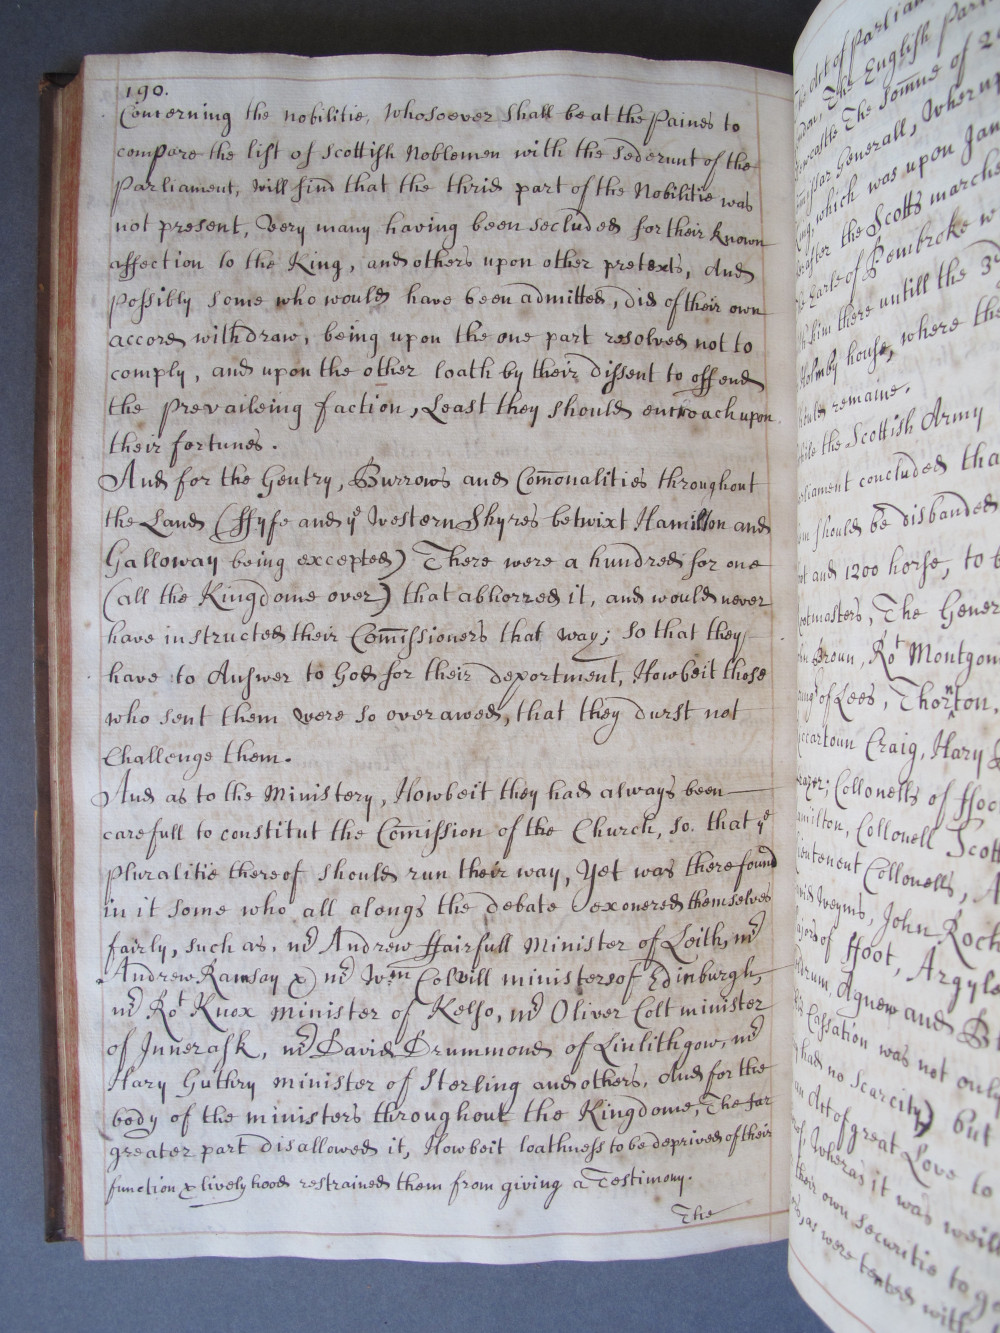 190.
Concerning the nobilitie, whosoever shall be at the Paines to
compare the list of Scottish Noblemen with the Sederunt of the
Parliament, will find that the thrid part of the Nobilitie was
not present, Very many having been secluded for their known
affection to the King, and others upon other pretexts, And
possibly some who would have been admitted, did of their own
accord withdraw, being upon the one part resolved not to
comply, and upon the other loath by their dissent to offend
the prevaileing faction, Least they should encroach upon
their fortunes.
And for the Gentry, Burrows and Com̄onalities throughout
the Land (ffyfe and yᵉ Western Shyres betwixt Hamilton and
Galloway being excepted) There were a hundred for one
(all the Kingdome over) that abhorred it, and would never
have instructed their Com̄issioners that way; so that they
have to Answer to God for their deportment, Howbeit those
who sent them were so overawed, that they durst not
Challenge them.
And as to the Ministery, Howbeit they had always been
carefull to constitut the Com̄ission of the Church, so that yᵉ
Pluralitie thereof should run their way, Yet was there found
in it some who all alongs the debate exonered themselves
fairly, such as, mʳ Andrew ffairfull Minister of Leith, mʳ
Andrew Ramsay & mʳ Wᵐ Colvill ministers of Edinburgh,
mʳ Roᵗ Knox minister of Kelso, mʳ Oliver Colt minister
of Innerask, mʳ David Drummond of Linlithgow, mʳ
Hary Guthry minister of Sterling and others. And for the
body of the ministers throughout the Kingdome, The far
greater part disallowed it, Howbeit loathness to be deprived of their
function & livelyhood restrained them from giving a Testimony.
The
Act of Parliam
The English Parl
castle The Somme of 2
Generall, Wherup
which was upon Jan
after the Scotts marche
Earle of Pembroke w
him there untill the 3ᵈ
Holmby house, where the
should remaine.
while the Scottish Army
concluded tha
should be disbanded
and 1200 horse, to b
The Gener
Broun, Roᵗ Montgom
of Lees, Thornton,
Craig, Hary
Collonells of ffoo
Collonell Scott
Collonells, A
Weyms, John Rock
of ffoot, Argyle
Agnew and
Cassation was not only
had no scarcity) but
an Act of great Love to
Wheras it was weill
their own securitie to
as were tented with